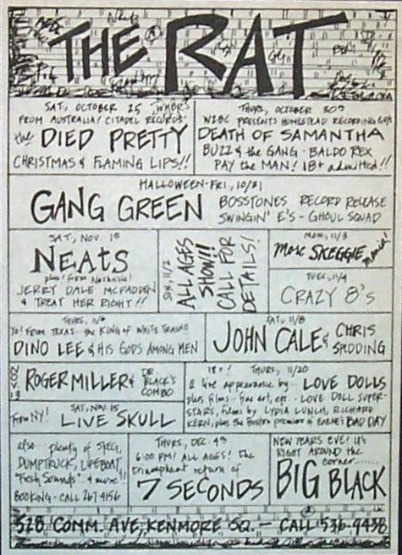 THE RAT
SAT, OCTOBER 25
FROM AUSTRALIA! CITADEL RECORDS'
the DIED PRETTY
CHRISTMAS & FLAMING LIPS!!
THURS, OCTOBER 30TH
WZBC PRESENTS HOMESTEAD RECORDING
DEATH OF SAMANTHA
BUZZ & the GANG · BALDO REX
PAY the MAN! 18+ admitted!!
HALLOWEEN-FRI, 10/31
GANG GREEN
BOSSTONES RECORD RELEASE
SWINGIN' E'S - GHOUL SQUAD
SAT, NOV. 1st
NEATS
plus! from Nashville!
JERRY DALE McFADDEN
& TREAT HER RIGHT!!
SUN, 11/2
ALL AGES
SHOW!!
CALL FOR
DETAILS!
MON, 11/3
More SKEGGIE mania!
TUES, 11/4
CRAZY 8's
THURS, 11/6
Yo! FROM TEXAS - the KING of WHITE TRASH!!
DINO LEE & HIS GODS AMONG MEN
SAT, 11/8
JOHN CALE & CHRIS
SPEDDING
ROGER MILLER &
DR.
BLACK'S
COMBO
SAT, NOV. 15
From NY!
LIVE SKULL
18+! THURS, 11/20
a live appearance by - LOVE DOLLS
plus films - fine art, etc. - LOVE DOLL SUPER-
STARS, films by LYDIA LUNCH, RICHARD
KERN, plus the Boston premiere of BAD DAY
also plenty of
DUMPTRUCK, LIFEBOAT,
"Fresh Sounds" & more!!
BOOKING - CALL 267-4156
THURS, DEC. 4th
6:00 PM! ALL AGES! the
triumphant return of
7 SECONDS
NEW YEARS EVE! IS
RIGHT AROUND the
corner
BIG BLACK
528 COMM. AVE, KENMORE SQ. - CALL 536-9438